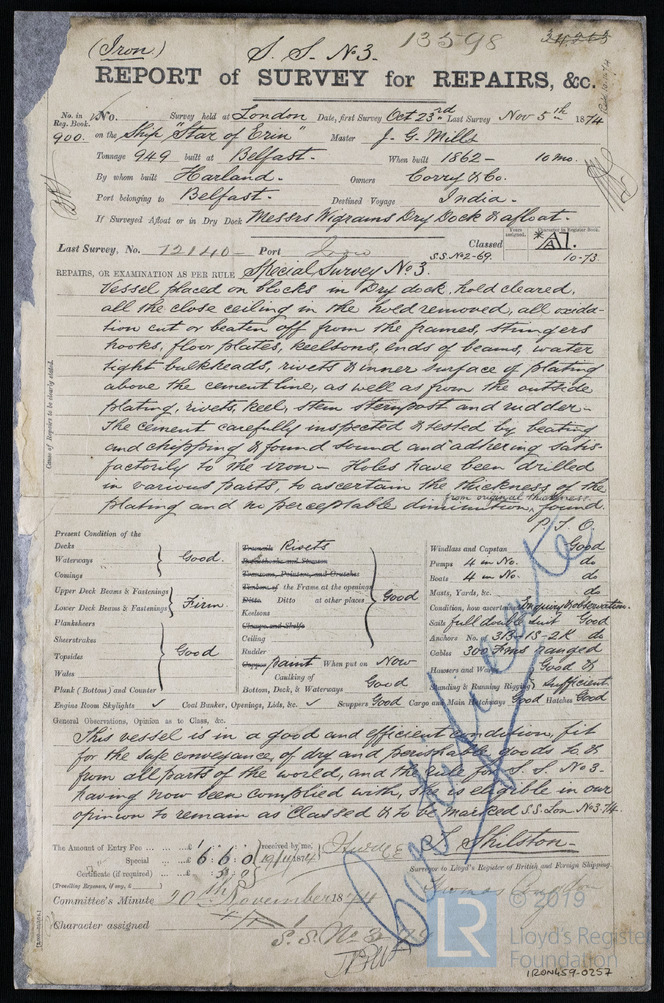 (Iron.) S. S. No 3. 13598
REPORT of SURVEY for REPAIRS, &c.
No. in Reg. Book. No. Survey held at London Date, first Survey Oct 23rd Last Survey Nov 5th 1874
900. on the Ship "Star of Erin" Master J. G. Mills
Tonnage 949 built at Belfast. When built 1862 - 10 mo.
By whom built Harland. Owners Corry & Co.
Port belonging to Belfast. Destined Voyage India.
If Surveyed Afloat or in Dry Dock Messrs Wigrams Dry Dock & afloat.
Last Survey, No. 12140 Port Lon Classed Years assigned. Character in Register Book. *A1.
S.S. No 2-69. 10-73
REPAIRS, OR EXAMINATION AS PER RULE Special Survey No 3.
Vessel placed on blocks in Dry dock, hold cleared,
all the close ceiling in the hold removed, all oxida-
tion cut or beaten off from the frames, stringers
hooks, floor plates, keelsons, ends of beams, water
tight bulkheads, rivets & inner surface of plating
above the cement line, as well as from the outside
plating, rivets, keel, stem sternpost and rudder-
The cement carefully inspected & tested by beating
and chipping & found sound and adhering satis-
factorily to the iron - Holes have been drilled
in various parts, to ascertain the thickness of the
plating and no perceptable diminution, from original thickness. found.
P. T. O.
Cause of Repairs to be clearly stated.
Present Condition of the
Decks
Waterways Good.
Comings
Upper Deck Beams & Fastenings
Lower Deck Beams & Fastenings Firm
Planksheers
Sheerstrakes
Topsides Good
Wales
Plank (Bottom) and Counter
Treenails Rivets
Breasthooks and Stemson
Transoms, Pointers, and Crutches
Timbers of the Frame at the openings
Ditto Ditto at other places Good
Keelsons
Clamps and Shelfs
Ceiling
Rudder
Copper paint When put on Now
Caulking of Bottom, Deck, & Waterways Good
Windlass and Capstan Good
Pumps 4 in No. do
Boats 4 in No. do
Masts, Yards, &c. do
Condition, how ascertained Inquiry & observation.
Sails full double suit Good
Anchors No. 3B-1S-2K do
Cables 300 fms ranged
Hawsers and Warps Good &
Standing & Running Rigging Sufficient
Engine Room Skylights ✓ Coal Bunker, Openings, Lids, &c. ✓ Scuppers Good Cargo and Main Hatchways Good Hatches Good
General Observations, Opinion as to Class, &c.
This vessel is in a good and efficient condition, fit
for the safe conveyance, of dry and perishable goods to &
from all parts of the world, and the rule for S. S. No 3-
having now been complied with, she is eligible in our
opinion to remain as Classed & to be marked S.S. Lon No 3.74.
The Amount of Entry Fee ... £ received by me,
Special ... £ 6 . 6 . 0 19/11/1874
Certificate (if required) ...
(Travelling Expenses, if any, £ )
Surveyor to Lloyd's Register of British and Foreign Shipping.
Committee's Minute 20th November 1874
Character assigned
S.S. No 3-74
© 2019
LR
Lloyd's Register
Foundation
IRON459-0257